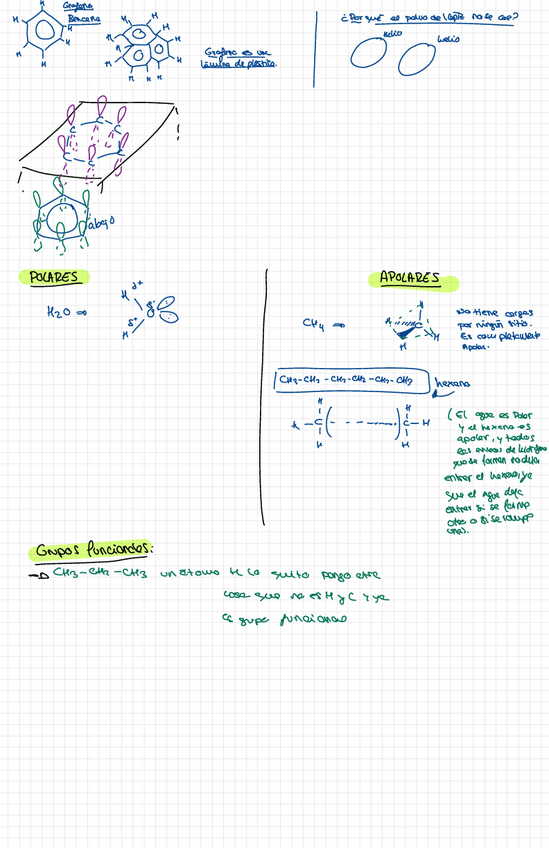 Grafeno
Benceno
Grafeno es una
lámina de plástico.
¿Por qué el polvo de lápiz no se cae?
Helio
Helio
abajo
POLARES
H2O ⇒
APOLARES
CH4 ⇒
No tiene cargas
por ningún sitio.
Es completamente
Apolar.
CH3-CH2-CH2-CH2-CH2-CH3
hexano
(El agua es Polar
y el hexano es
apolar, y todos
los enlaces de hidrógeno
que se forman no dejan
entrar el hexano, ya
que el Agua deja
entrar si se forma
otro o si se rompe
Grupos funcionales:
→ CH3-CH2-CH3 un átomo H lo quito pongo otra
cosa que no es H y C y ya
es grupo funcional